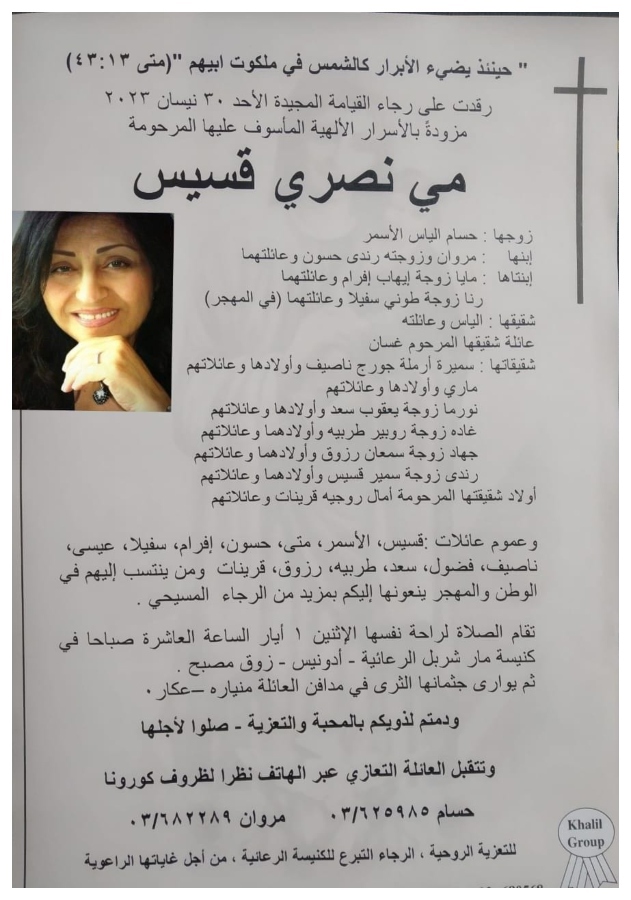 " حينئذ يضيء الأبرار كالشمس في ملكوت ابيهم "(متى ٤٣:١٣)
رقدت على رجاء القيامة المجيدة الأحد ٣٠ نيسان ٢٠٢٣
مزودةً بالأسرار الألهية المأسوف عليها المرحومة
مي نصري قسيس
زوجها : حسام الياس الأسمر
إبنها : مروان وزوجته رندى حسون وعائلتهما
إبنتاها : مايا زوجة إيهاب إفرام وعائلتهما
رنا زوجة طوني سفيلا وعائلتهما (في المهجر)
شقيقها : الياس وعائلته
عائلة شقيقها المرحوم غسان
شقيقاتها : سميرة أرملة جورج ناصيف وأولادها وعائلاتهم
ماري وأولادها وعائلاتهم
نورما زوجة يعقوب سعد وأولادها وعائلاتهم
غاده زوجة روبير طربيه وأولادهما وعائلاتهم
جهاد زوجة سمعان رزوق وأولادهما وعائلاتهم
رندى زوجة سمير قسيس وأولادهما وعائلاتهم
أولاد شقيقتها المرحومة أمال روجيه قرينات وعائلاتهم
وعموم عائلات :قسيس، الأسمر، متى، حسون، إفرام، سفيلا، عيسى،
ناصيف، فضول، سعد، طربيه، رزوق، قرينات ومن ينتسب إليهم في
الوطن والمهجر ينعونها إليكم بمزيد من الرجاء المسيحي .
تقام الصلاة لراحة نفسها الإثنين ١ أيار الساعة العاشرة صباحا في
كنيسة مار شربل الرعائية - أدونيس - زوق مصبح .
ثم يوارى جثمانها الثرى في مدافن العائلة منياره –عكار٠
ودمتم لذويكم بالمحبة والتعزية - صلوا لأجلها
وتتقبل العائلة التعازي عبر الهاتف نظرا لظروف كورونا
حسام ٠٣/٦٢٥٩٨٥ مروان ٠٣/٦٨٢٢٨٩
للتعزية الروحية ، الرجاء التبرع للكنيسة الرعائية ، من أجل غاياتها الراعوية
Khalil
Group